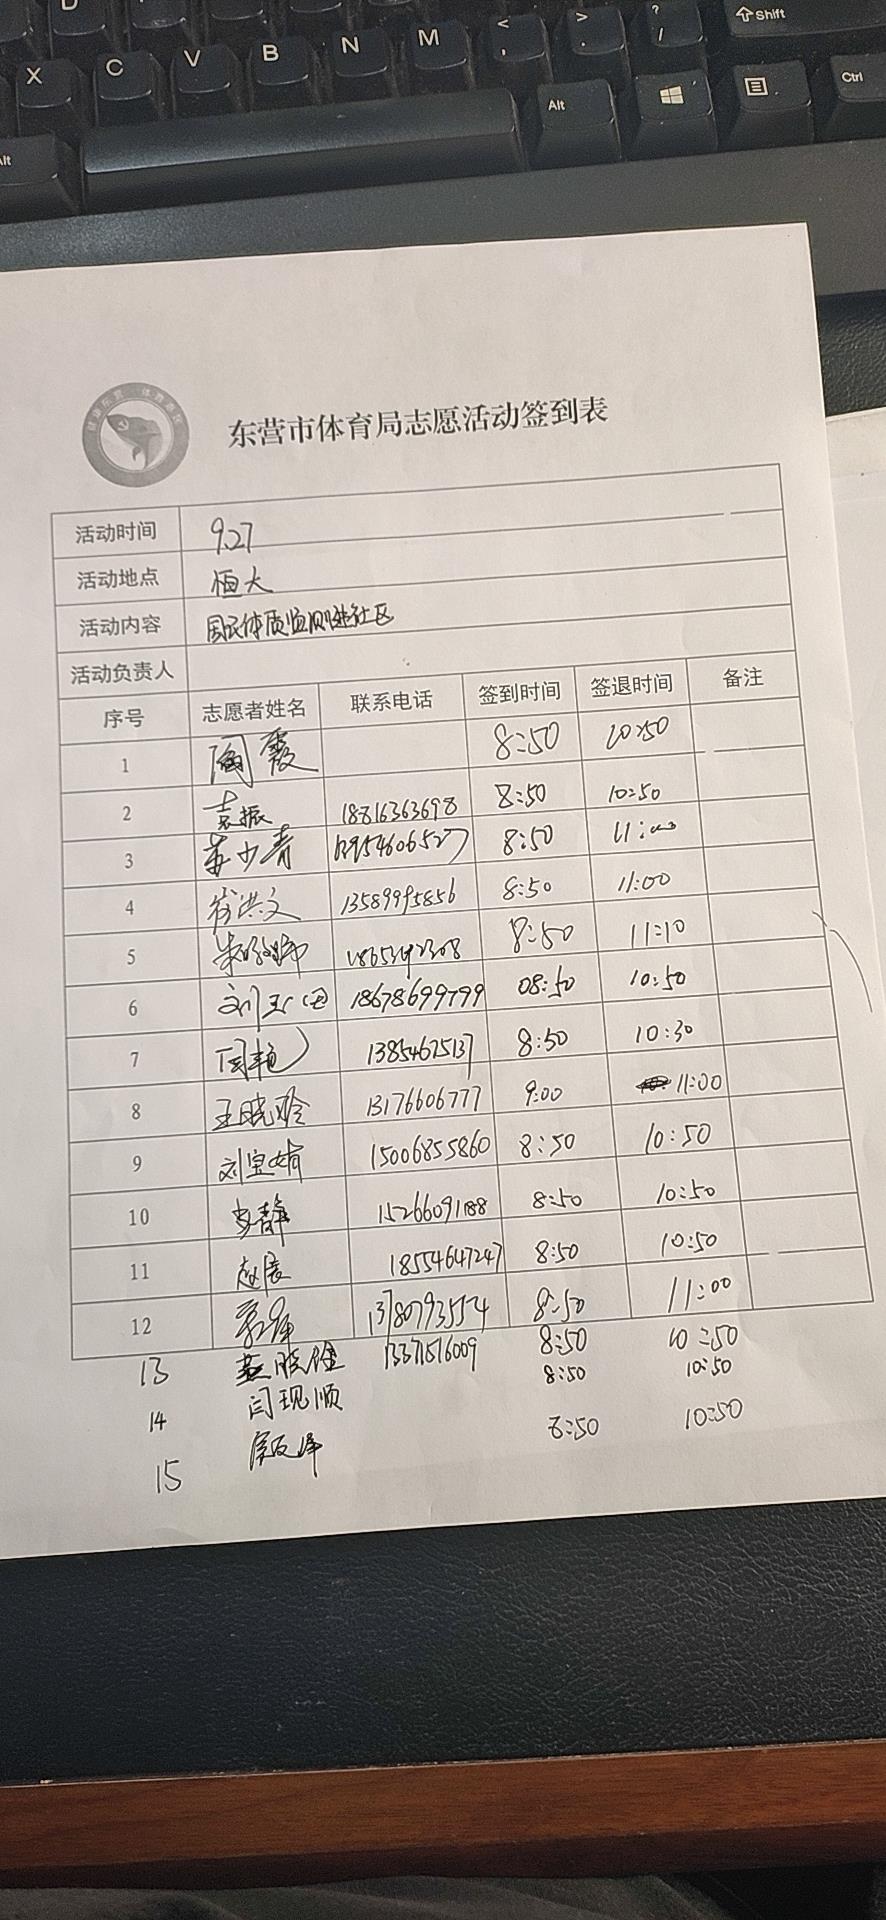 X C V B N M < , > . ? / Shift
Alt Alt Ctrl
健康东营 体育惠民
东营市体育局志愿活动签到表
活动时间 9.27
活动地点 恒大
活动内容 国民体质监测进社区
活动负责人
序号 志愿者姓名 联系电话 签到时间 签退时间 备注
1 陶霞 8:50 10:50
2 袁振 18816363698 8:50 10:50
3 苏少青 13954606527 8:50 11:00
4 崔洪文 13589995856 8:50 11:00
5 8:50 11:10
6 18678699799 08:50 10:50
7 周艳 13854675137 8:50 10:30
8 王晓玲 13176606777 9:00 11:00
9 刘宝娟 15006855860 8:50 10:50
10 李静 15266091188 8:50 10:50
11 赵展 18554647247 8:50 10:50
12 13780793554 8:50 11:00
13 13371516009 8:50 10:50
14 闫现顺 8:50 10:50
15 8:50 10:50